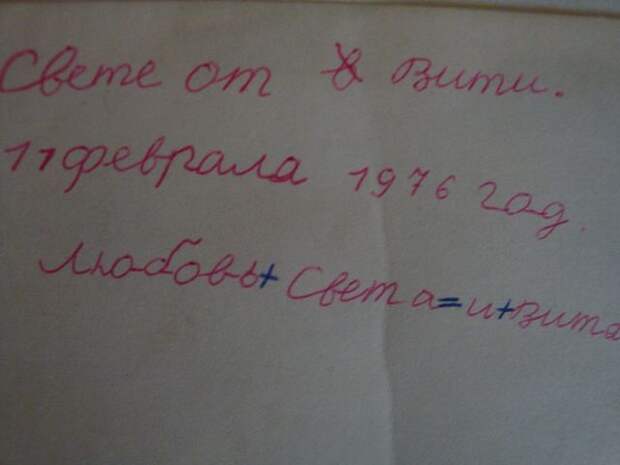 Свете от Вити.
11 февраля 1976 год.
Любовь+Света=и+Витя